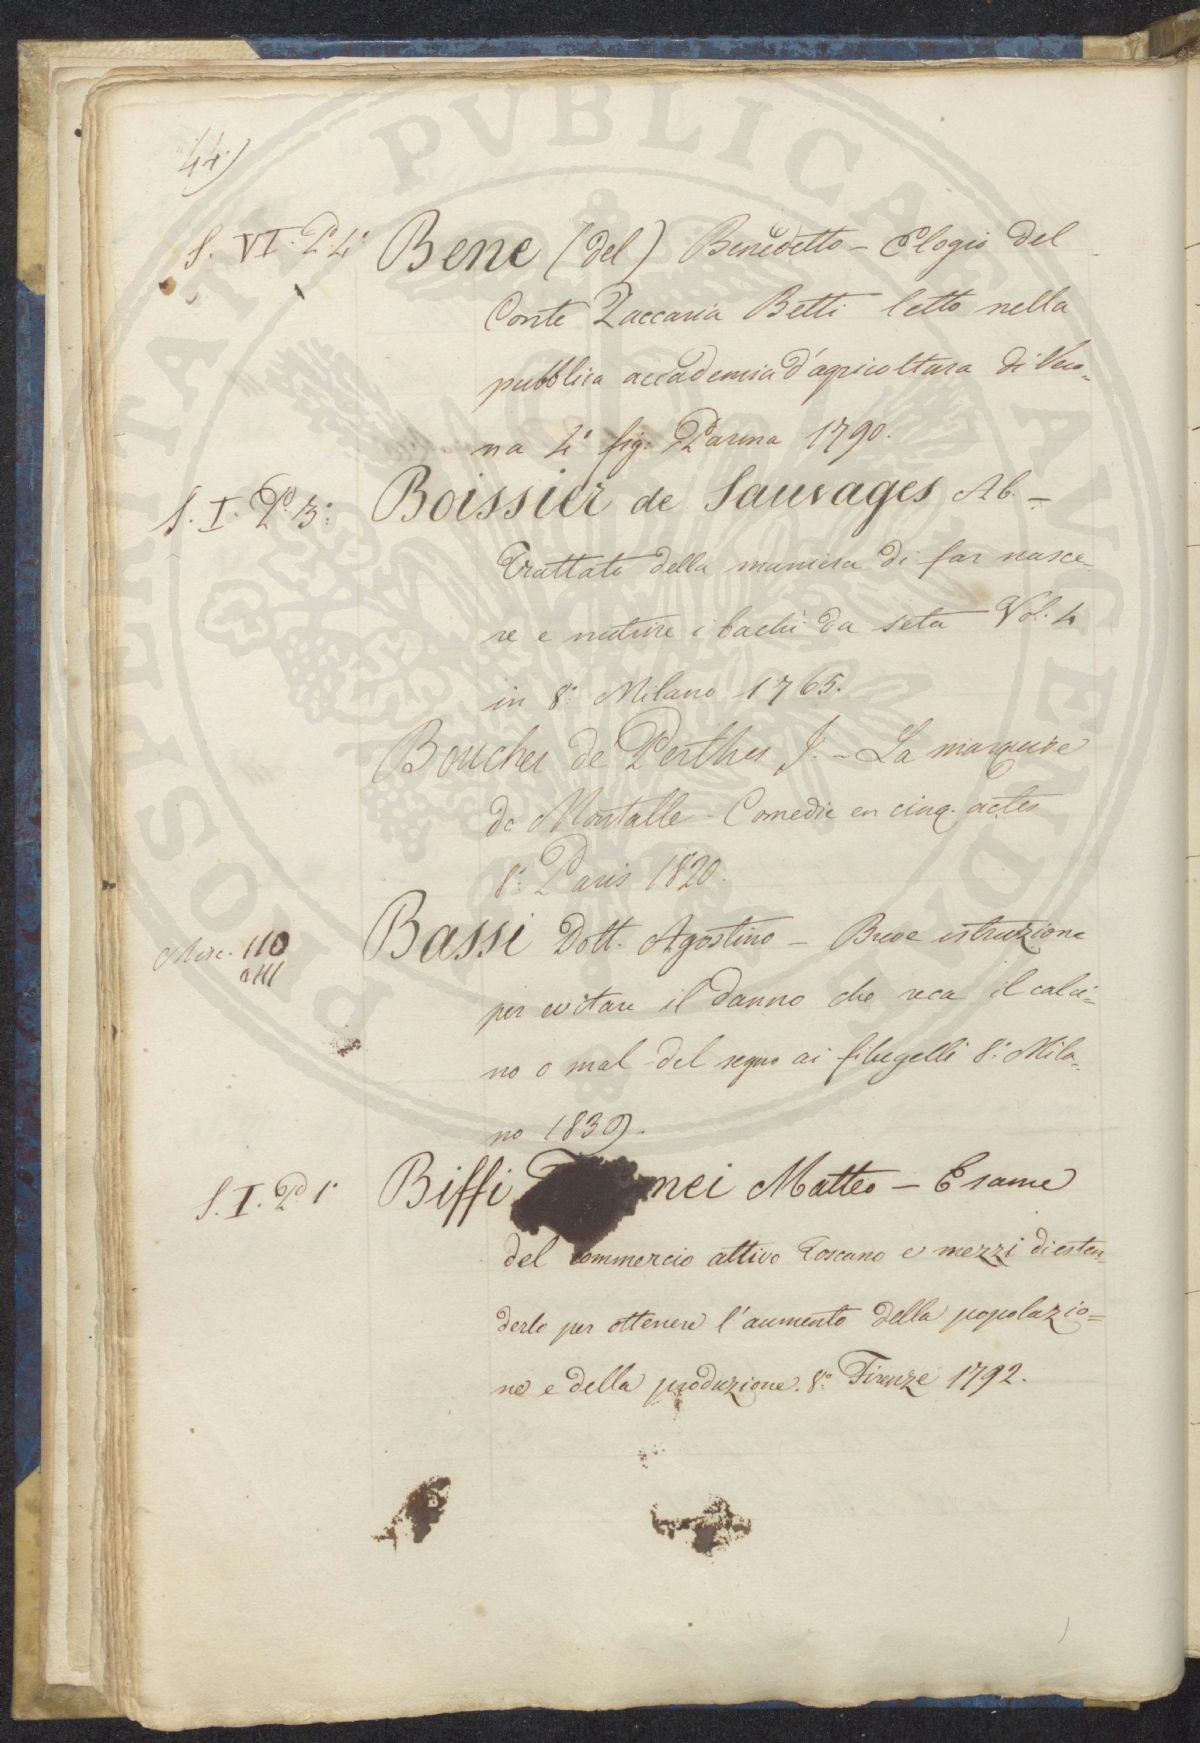 44)
S. VI. P. 4° Bene (del) Benedetto – Elogio del
Conte Zaccaria Betti letto nella
pubblica accademia d'agricoltura di Vero=
na 4° fig: Parma 1790.
S. I. P. 3°: Boissier de Sauvages Ab. –
Trattato della maniera di far nasce-
re e nutrire i bachi da seta Vol. 4
in 8° Milano 1765.
Boucher de Perthes J. – La marquise
de Montalle – Comedie en cinq. actes
8° Paris 1820.
Misc. 110 Bassi Dott. Agostino – Breve istruzione
a 111
per evitare il danno che reca il calci=
no o mal del segno ai filugelli 8° Mila=
no 1839.
S. I. P. 1° Biffi nei Matteo – Esame
del commercio attivo Toscano e mezzi di esten=
derlo per ottenere l'aumento della popolazio=
ne e della produzione. 8° Firenze 1792.
PROSPERITATI PVBLICAE AVGENDAE